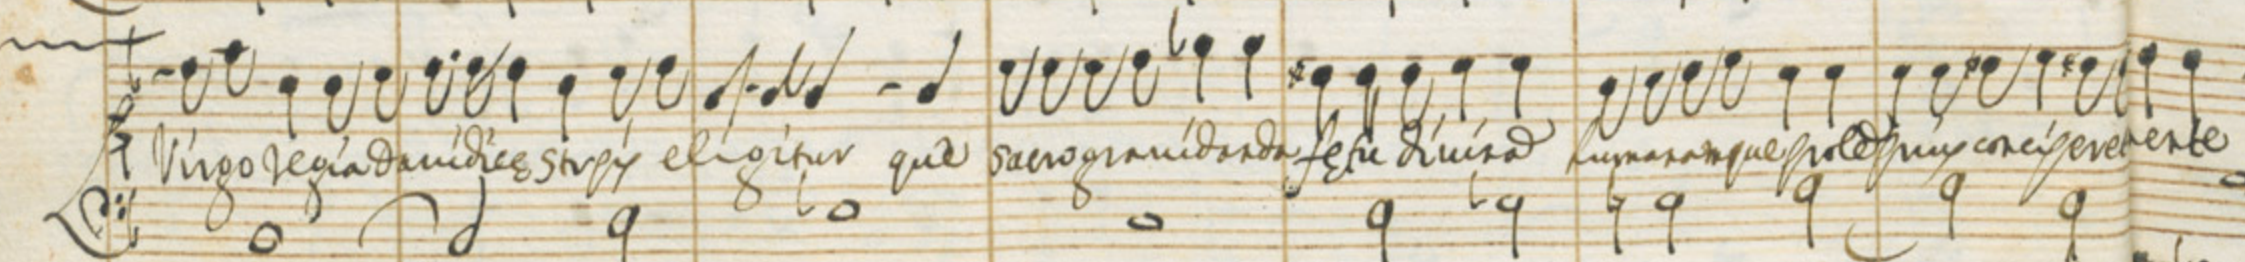 Virgo regia Davidicę stirpis eligitur quæ sacro gravidanda fętu divinā humanamque prolē prius conciperet mente